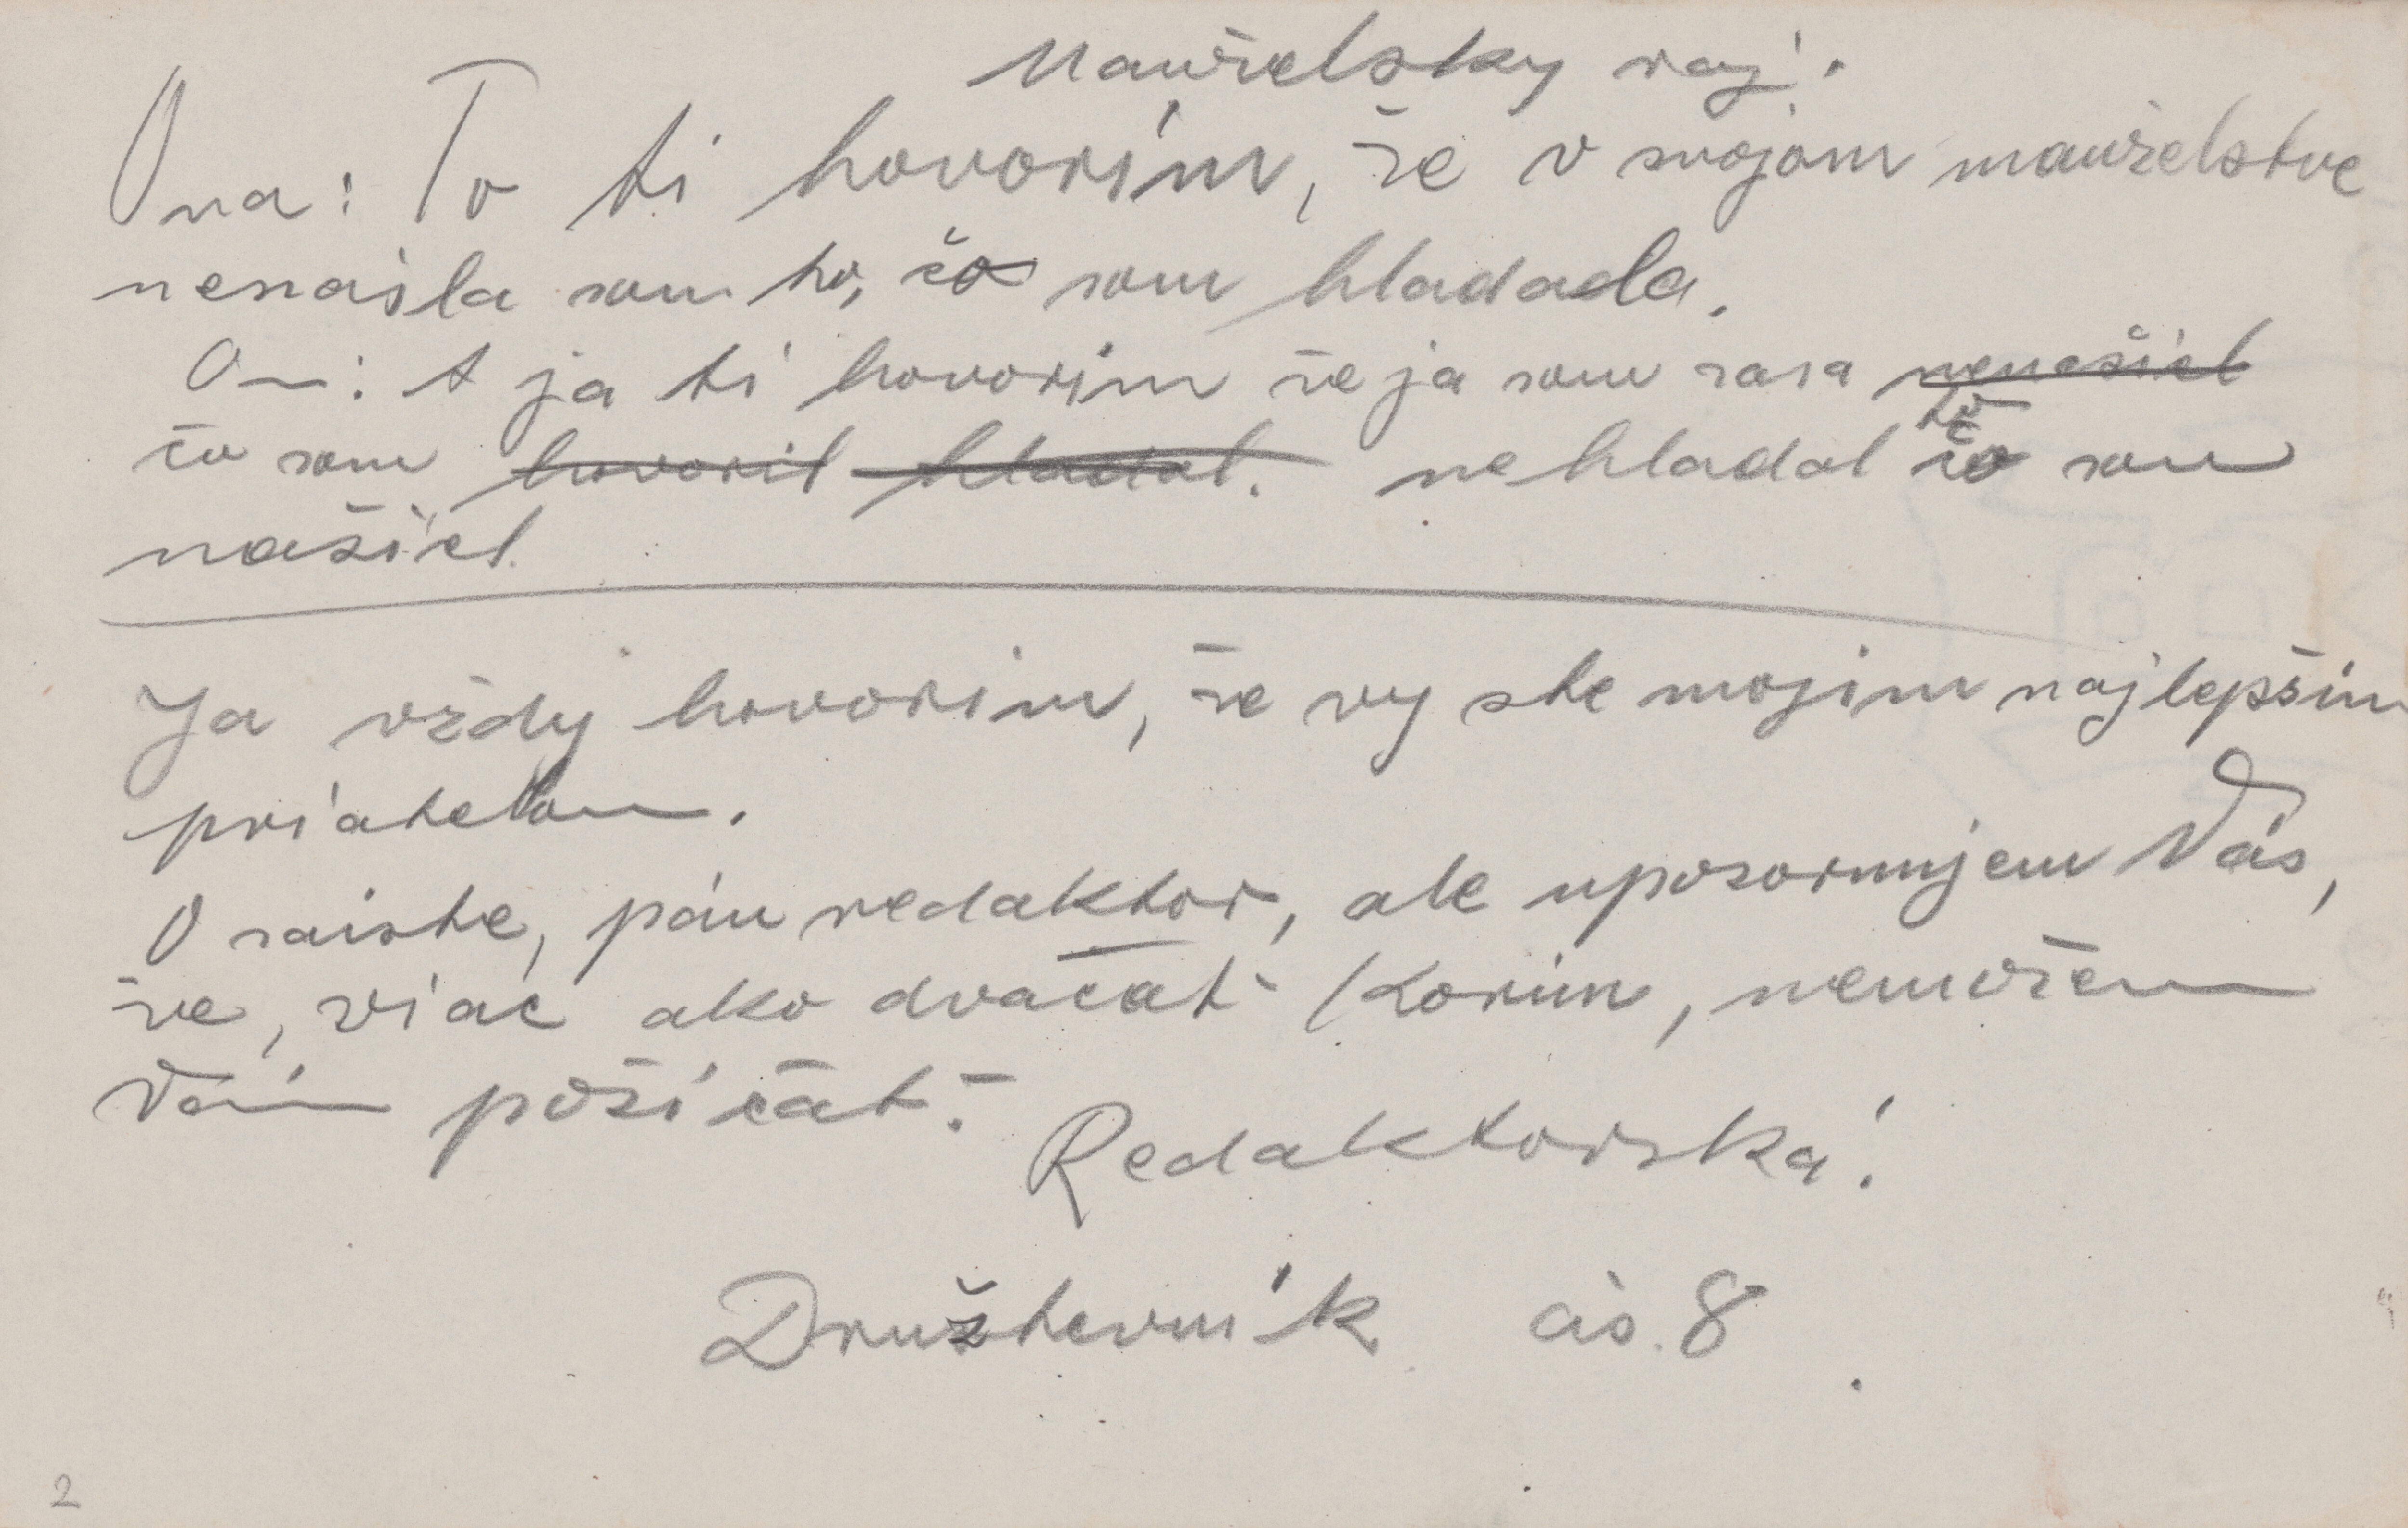 Manželsky raj.
Ona: To ti hovorím, že v svojom manželstve
nenašla som to, čo som hladala.
On: A ja ti hovorim že ja som zasa nenašiel
čo som hovoril hladal. nehladal to čo som
našiel.
Ja vždy hovorim, že vy ste mojim najlepším
priatelom.
O zaiste, pán redaktor, ale upozornujem Vás,
že, viac ako dvacať Korún, nemožem
Vám požičať.
Redaktorská!
Družtevník čis. 8
2